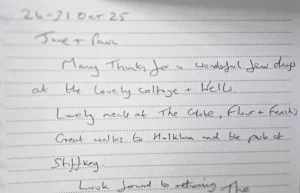 26-31 Oct 25
June + Paul
Many Thanks for a wonderful few days
at the Lovely Cottage + Wells
Lovely meals at The Globe, Flour +
Great walks to Holkham and the pub at
Stiffkey.
Look forward to returning The